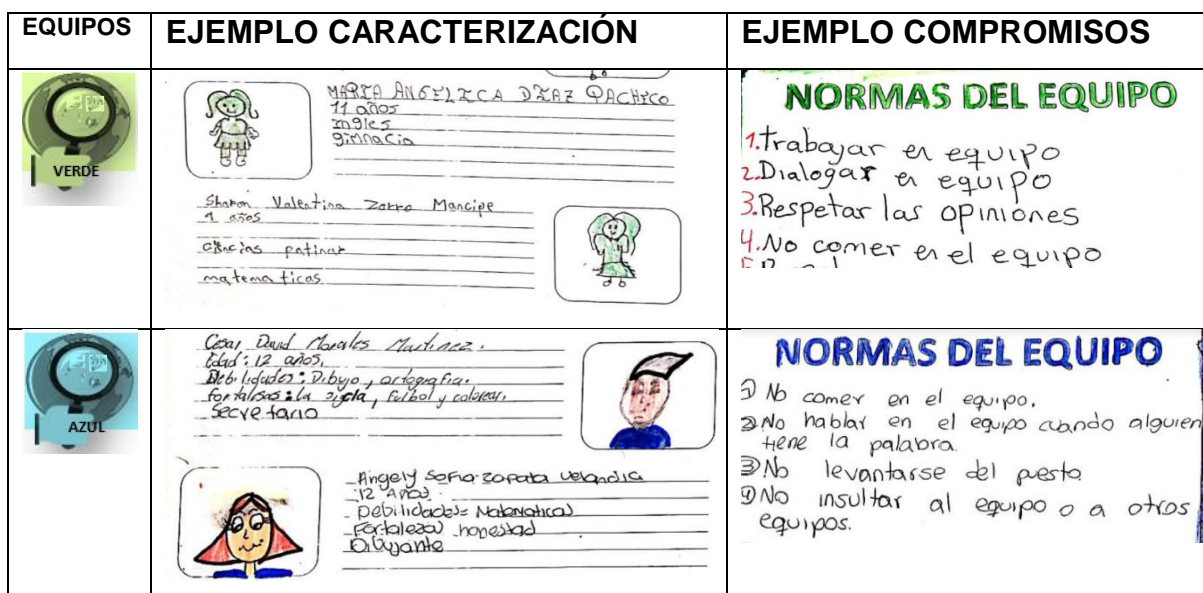 EQUIPOS
EJEMPLO CARACTERIZACIÓN
EJEMPLO COMPROMISOS
VERDE
MARIA ANGELICA DIAZ PACHICO
11 años
ingles
gimnacia
Sharon Valentina Zorro Mancipe
9 años
ciencias patinar
matematicas
NORMAS DEL EQUIPO
1. Trabajar en equipo
2. Dialogar en equipo
3. Respetar las opiniones
4. No comer en el equipo
AZUL
Cesar David Morales Martinez.
Edad: 12 años.
Debilidades: Dibujo, ortografia.
fortalesas: la sigla, Futbol y colorear.
Secretario
Angely Sofia Zapata Velandia
12 Años
Debilidades= Matematicas
Fortalezas honestad
Dibujante
NORMAS DEL EQUIPO
1 No comer en el equipo.
2 No hablar en el equipo cuando alguien
tiene la palabra.
3 No levantarse del puesto
4 No insultar al equipo o a otros
equipos.